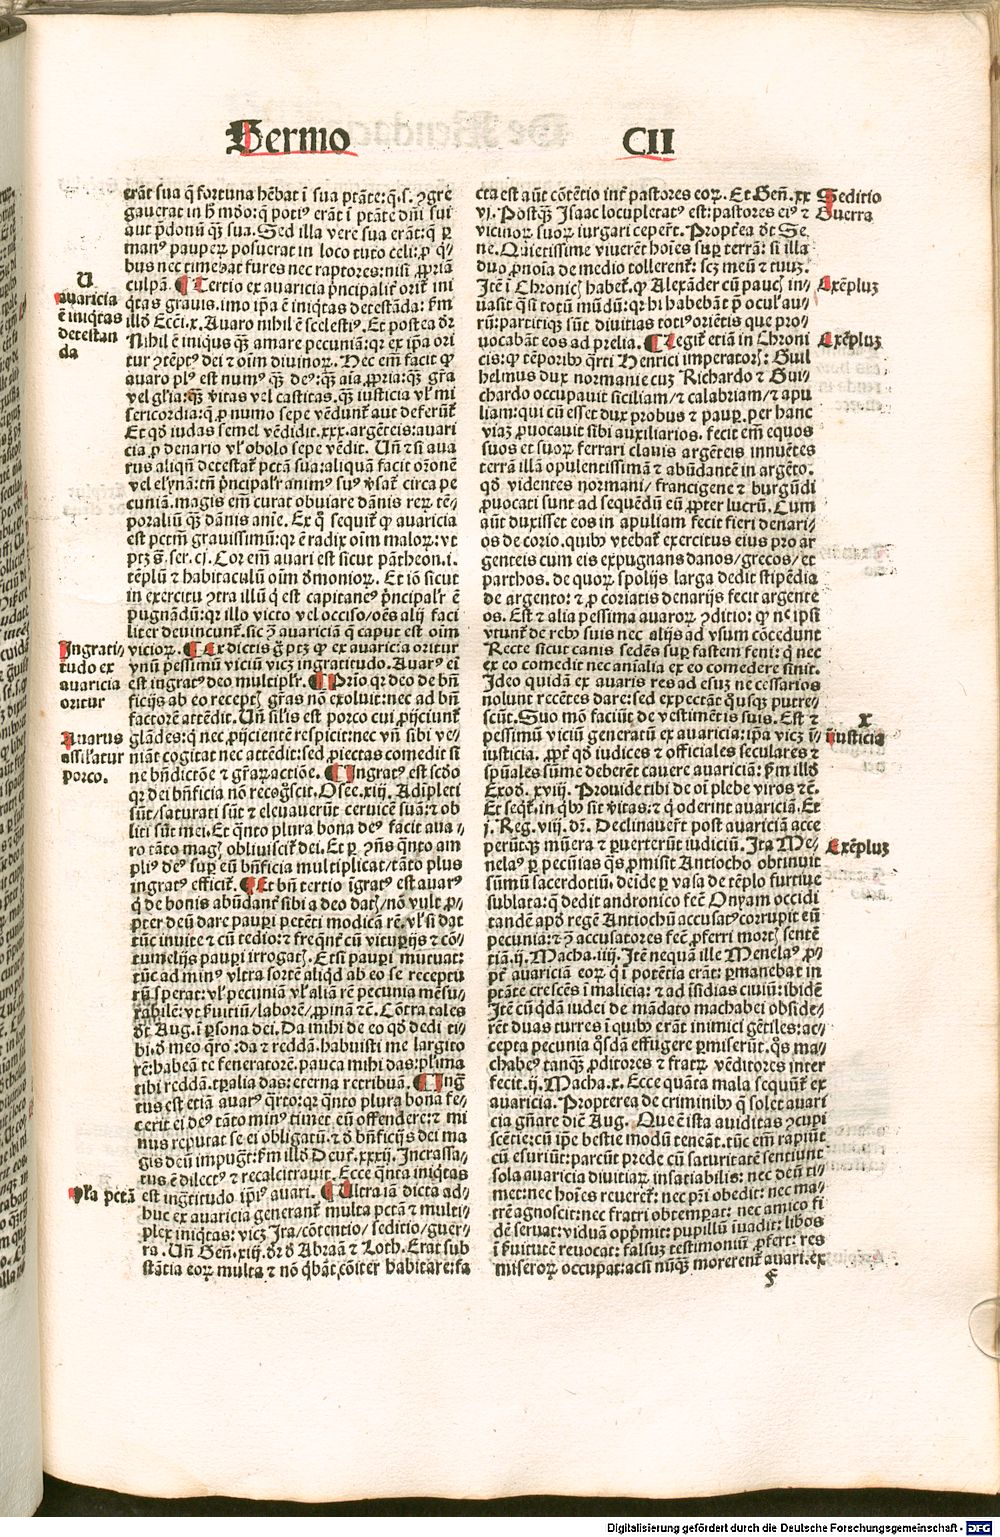 Sermo
CII
erāt sua q̄ fortuna hēbat ī sua ptāte: q. s. ꝯgre
gauerat in hᷤ mōo: q̄ potiꝰ erāt ī ptāte dn̄i sui
aut p̄donū qᷓ sua. Sed illa vere sua erāt: q̄ ꝑ
manꝰ pauperꝝ posuerat in loco tuto celi: ꝓ q̄-
bus nec timebat fures nec raptores: nisi ꝓpriā
culpā. ¶ Tertio ex auaricia p̄ncipalit᷑ orit᷑ ini
qͥtas grauis. imo ip̄a ē iniqͥtas detestāda: ẜm
illḋ Ecci. x. Auaro nihil ē scelestiꝰ. Et postea dr̄
Nihil ē iniquꝰ qᷓ amare pecuniā: qr ex ip̄a ori
tur ꝯtēptꝰ dei ⁊ oīm diuinoꝝ. Nec em̄ facit ꝙ
auaro plꝰ est numꝰ qᷓ deꝰ: qᷓ aīa ꝓpria: qᷓ gr̄a
vel gl̄ia: qᷓ v̄itas vel castitas. qᷓ iusticia vl̓ mi
sericordia: q̄ ꝓ numo sepe vēdunt᷑ aut deferūt᷑
Et qḋ iudas semel vēdidit. xxx. argēteis: auari
cia ꝓ denario vl̓ obolo sepe vēdit. Un̄ ⁊ si aua
rus aliqn̄ detestat᷑ pctā sua: aliquā facit or̄onē
vel elyn̄ā: tn̄ p̄ncipalr̓ animꝰ suꝰ v̓sat᷑ circa pe
cuniā. magis em̄ curat obuiare dānis reꝝ tē-
poraliū qᷓ dānis anīe. Ex q̄ sequit᷑ ꝙ auaricia
est pctm̄ grauissimū: qr ē radix oīm maloꝝ: vt
ptꝫ s̄. ser. cj. Cor em̄ auari est sicut pātheon. i.
tēplū ⁊ habitaculū oīm demonioꝝ. Et iō sicut
in exercitu ꝯtra illū q̄ est capitaneꝰ p̄ncipalr̓ ē
pugnādū: qr illo victo vel occiso/ oēs alij faci
liter deuincunt᷑. sic ꝯ̄ auariciā q̄ caput est oīm
vicioꝝ. ¶ Ex dictis ḡ ptꝫ ꝙ ex auaricia oritur
vnū pessimū viciū vicꝫ ingratitudo. Auarꝰ eī
est ingratꝰ deo multiplr̓. ¶ Prīo qr deo de bn̄
ficijs ab eo receptꝭ gr̄as nō exoluit: nec ad bn̄
factorē attēdit. Un̄ sil̓is est porco cui ꝓijciunt᷑
glādes: q̄ nec ꝓijcientē respicit: nec vn̄ sibi ve-
niāt cogitat nec attēdit: sed ꝓiectas comedit si
ne bn̄dictōe ⁊ gr̄aꝝ actiōe. ¶ Ingratꝰ est scḋo
qr dei bn̄ficia nō recog̓scit. Osee. xiij. Adīpleti
sūt/ saturati sūt ⁊ eleuauerūt ceruicē suā: ⁊ ob
liti sūt mei. Et qͣnto plura bona deꝰ facit aua-
ro tāto magꝭ obliuiscit᷑ dei. Et ꝑ ꝯn̄s qͣnto am
pliꝰ deꝰ suꝑ eū bn̄ficia multiplicat/ tāto plus
ingratꝰ efficit᷑. ¶ Et bn̄ tertio īgratꝰ est auarꝰ
q̄ de bonis abūdant᷑ sibi a deo datꝭ/ nō vult ꝓ-
pter deū dare pauꝑi petēti modicā rē. vl̓ si dat
tūc inuite ⁊ cū tedio: ⁊ freqn̄t᷑ cū vitupijs ⁊ cō-
tumelijs pauꝑi irrogatꝭ. Et si pauꝑi mutuat:
tūc ad minꝰ vltra sortē aliqͥd ab eo se receptu
rū sperat: vl̓ pecuniā vl̓ aliā rē pecunia mēsu-
rabilē: vt ẜuitiū/ laborē/ ꝓpinā ⁊c̄. Cōtra tales
dt̄ Aug. ī ꝑsona dei. Da mihi de eo qḋ dedi ti-
bi. ḋ meo q̄ro: da ⁊ reddā. habuisti me largito
rē: habeā te feneratorē. pauca mihi das: plīma
tibi reddā. tꝑalia das: eterna retribuā. ¶ Ingͣ
tus est etiā auarꝰ qͣrto: qr qͣnto plura bona fe-
cerit ei deꝰ tāto minꝰ timet cū offendere: ⁊ mi
nus reputat se ei obligatū. ⁊ ḋ bn̄ficijs dei ma
gis deū impugͣt: ẜm illḋ Deut᷑. xxxij. Incrassa-
tus ē dilectꝰ ⁊ recalcitrauit. Ecce qͣnta iniqͥtas
est ingͣtitudo ip̄iꝰ auari. ¶ Ultra ia dicta ad-
huc ex auaricia generant᷑ multa pctā ⁊ multi-
plex iniqͥtas: vicꝫ Ira/ cōtentio/ seditio/ guer-
ra. Un̄ Gen̄. xiij. dr̄ ḋ Abraā ⁊ Loth. Erat sub
stātia eoꝝ multa ⁊ nō q̄bāt cōiter habitare: fa
U
auaricia
ē iniqͥtas
detestan
da
Ingrati-
tudo ex
auaricia
oritur
Auarus
assilatur
porco.
Plͣa pctā
cta est aūt cōtētio int᷑ pastores eoꝝ. Et Gen̄. xx
vj. Postqᷓ Isaac locupletatꝰ est: pastores eiꝰ ⁊
vicinoꝝ suoꝝ iurgari ceperūt. Propt̓ea dt̄ Se
ne. Quietissime viuerēt hoīes suꝑ terrā: si illa
duo ꝓnoīa de medio tollerent᷑: scꝫ meū ⁊ tuuꝫ.
Itē ī Chronicꝭ habet᷑. ꝙ Alexāder cū paucꝭ in-
uasit qͣsi totū mūdū: qr hi habebāt p̄ oculꝭ au-
rū: partitiqꝫ sūt diuitias totiꝰ oriētis que pro-
vocabāt eos ad prelia. ¶ Legit᷑ etiā in Chroni
cis: ꝙ tēporibꝰ qͣrti Henrici imperatorꝭ: Guil
helmus dux normanie cuꝫ Richardo ⁊ Gui-
chardo occupauit siciliam/ ⁊ calabriam/ ⁊ apu
liam: qui cū esset dux probus ⁊ pauꝑ. per hanc
viaꝫ ꝓuocauit sibi auxiliarios. fecit em̄ equos
suos et suoꝝ ferrari clauis argēteis innuētes
terrā illā opulentissimā ⁊ abūdantē in argēto.
qḋ videntes normani/ francigene ⁊ burgūdi
ꝓuocati sunt ad sequēdū eū ꝓpter lucrū. Cum
aūt duxisset eos in apuliam fecit fieri denari-
os de corio. quibꝰ vtebat᷑ exercitus eius pro ar
genteis cum eis expugnans danos/ grecos/ et
parthos. de quoꝝ spolijs larga dedit stipēdia
de argento: ⁊ ꝓ coriatis denarijs fecit argente
os. Est ⁊ alia pessima auaroꝝ ꝯditio: ꝙ nec ipsi
vtunt᷑ de rebꝰ suis nec alijs ad vsum cōcedunt
Recte sicut canis sedēs suꝑ fastem feni: q̄ nec
ex eo comedit nec aīalia ex eo comedere sinit.
Ideo quidā ex auaris res ad esuꝫ necessarios
nolunt recētes dare: sed expectāt qͦusqꝫ putre-
scūt. Suo mō faciūt de vestimētis suis. Est ⁊
pessimū viciū generatū ex auaricia: ip̄a vicꝫ ī-
iusticia. ꝓpt᷑ qḋ iudices ⁊ officiales seculares ⁊
sp̄uales sūme deberēt cauere auariciā: ẜm illḋ
Exod. xviij. Prouide tibi de oī plebe viros ⁊c̄.
Et seqͥt᷑. in qͥbꝰ sit v̓itas: ⁊ q̄ oderint auariciā. Et
j. Reg. viij. dr̄. Declinauer̄t post auariciā acce
perūtqꝫ mūera ⁊ ꝑuerterūt iudiciū. Ita Me-
nelaꝰ ꝑ pecūias qͣs ꝓmisit Antiocho obtinuit
sūmū sacerdotiū. deīde ꝑ vasa de tēplo furtiue
sublata: q̄ dedit andronico fecit Onyam occidi
tandē apḋ regē Antiochū accusatꝰ corrupit eū
pecunia: ⁊ ꝯ̄ accusatores fecit ꝓferri mortꝭ sentē
tiā. ij. Macha. iiij. Itē nequā ille Menelaꝰ ꝓ-
pt᷑ auariciā eoꝝ q̄ ī potētia erāt: ꝑmanebat in
ptāte crescēs ī malicia: ⁊ ad īsidias ciuiū: ibidē
Itē cū qͥdā iudei de mādato machabei obside-
rēt duas turres ī quibꝰ erāt inimici gētiles: ac-
cepta pecunia qͦsdā effugere ꝑmiserūt. qͦs ma-
chabeꝰ tanqᷓ ꝓditores ⁊ fratꝝ vēditores inter
fecit. ij. Macha. x. Ecce quāta mala sequūt᷑ ex
auaricia. Propterea de criminibꝰ q̄ solet auari
cia gn̄are dicit Aug. Que ē ista auiditas ꝯcupi
scētie: cū ip̄e bestie modū teneāt. tūc em̄ rapiūt
cū esuriūt: parcūt prede cū saturitatē sentiunt
sola auaricia diuitiaꝝ insatiabilis: nec deū ti-
met: nec hoīes reueret᷑: nec pr̄i obedit: nec ma-
trē agnoscit: nec fratri obtempat: nec amico fi
dē seruat: viduā opp̄mit: pupillū īuadit: libos
ī ẜuitutē reuocat: falsuꝫ testimoniū ꝓfert: res
miseroꝝ occupat: acsi nūqᷓ morerent᷑ auari. ex
Seditio
Guerra
Exēpluꝫ
Exēpluꝫ
x
iniusticia
Exēpluꝫ
f
Digitalisierung gefördert durch die Deutsche Forschungsgemeinschaft - DFG